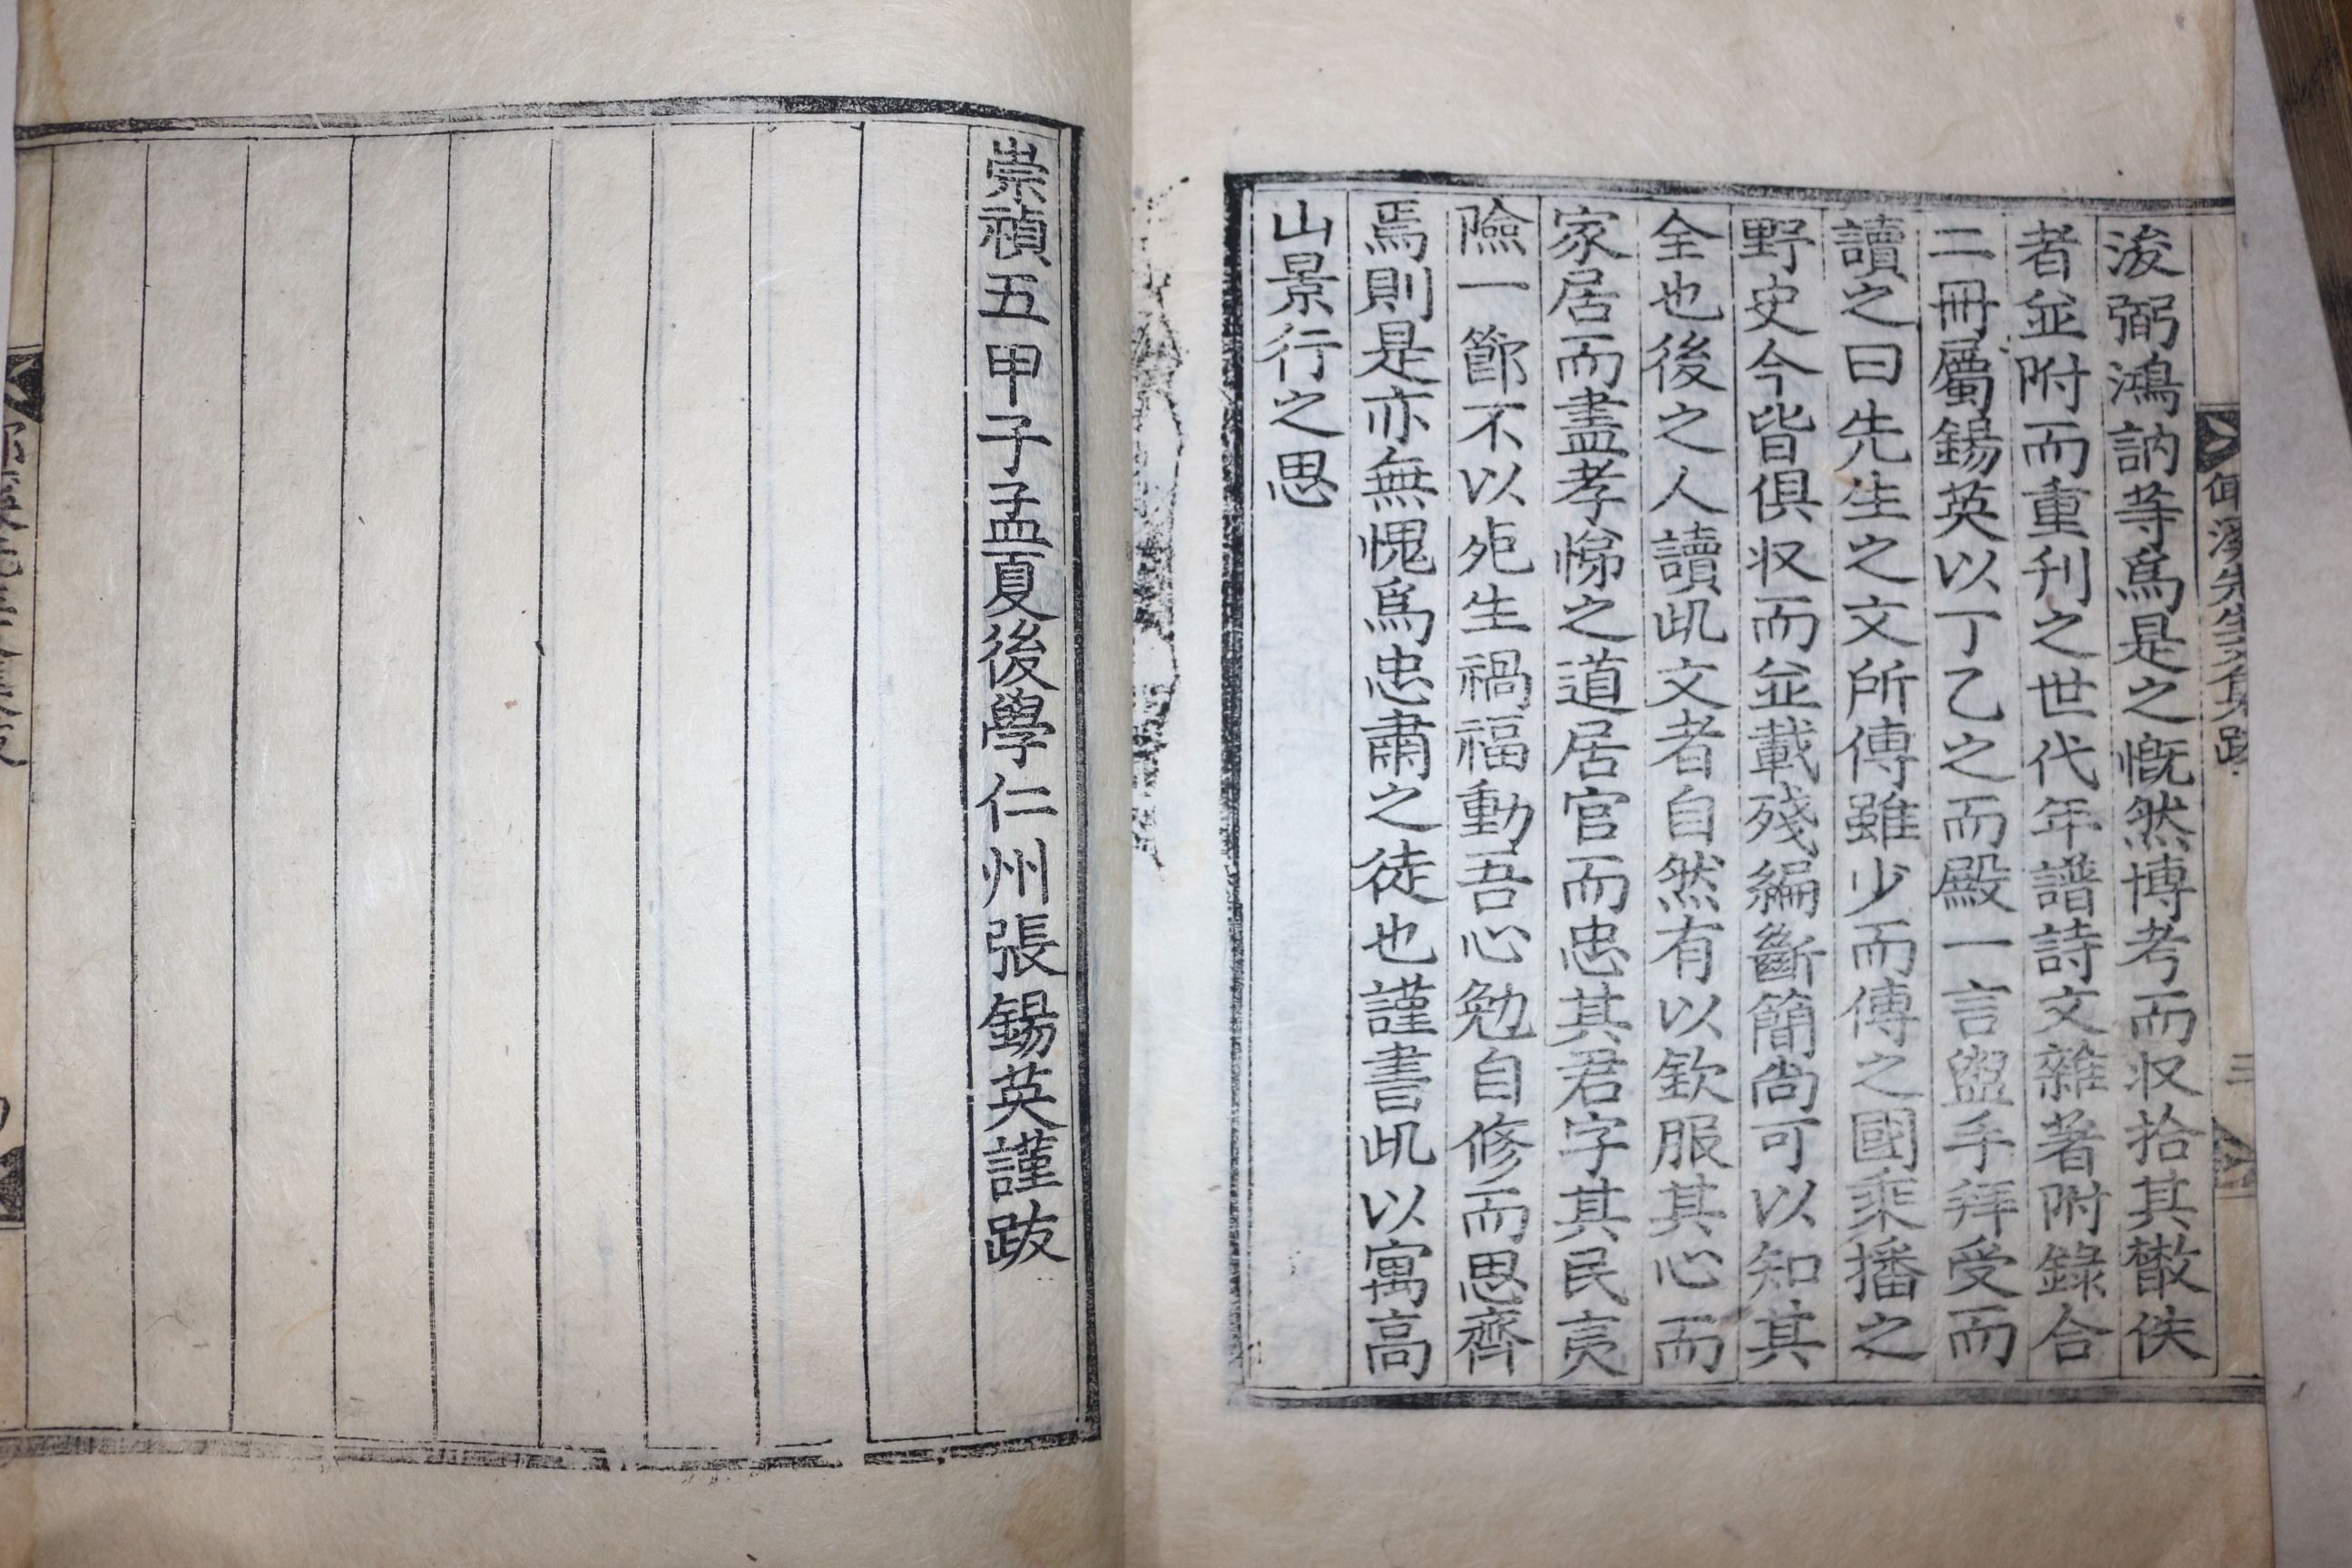 浚弼鴻訥等爲是之慨然博考而収拾其散佚
者並附而重刊之世代年譜詩文雜著附錄合
二冊屬錫英以丁乙之而殿一言盥手拜受而
讀之曰先生之文所傳雖少而傳之國乘播之
野史今皆俱収而並載殘編斷簡尚可以知其
全也後之人讀此文者自然有以欽服其心而
家居而盡孝悌之道居官而忠其君字其民夷
險一節不以死生禍福動吾心勉自修而思齊
焉則是亦無愧爲忠肅之徒也謹書此以寓高
山景行之思
崇禎五甲子孟夏後學仁州張錫英謹跋
溪先生文集跋
三